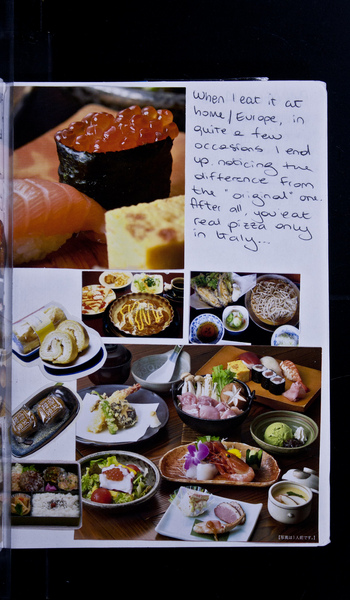 When I eat it at
home/Europe, in
quite a few
occasions I end
up noticing the
difference from
the "original" one.
After all, you eat
real pizza only
in Italy...